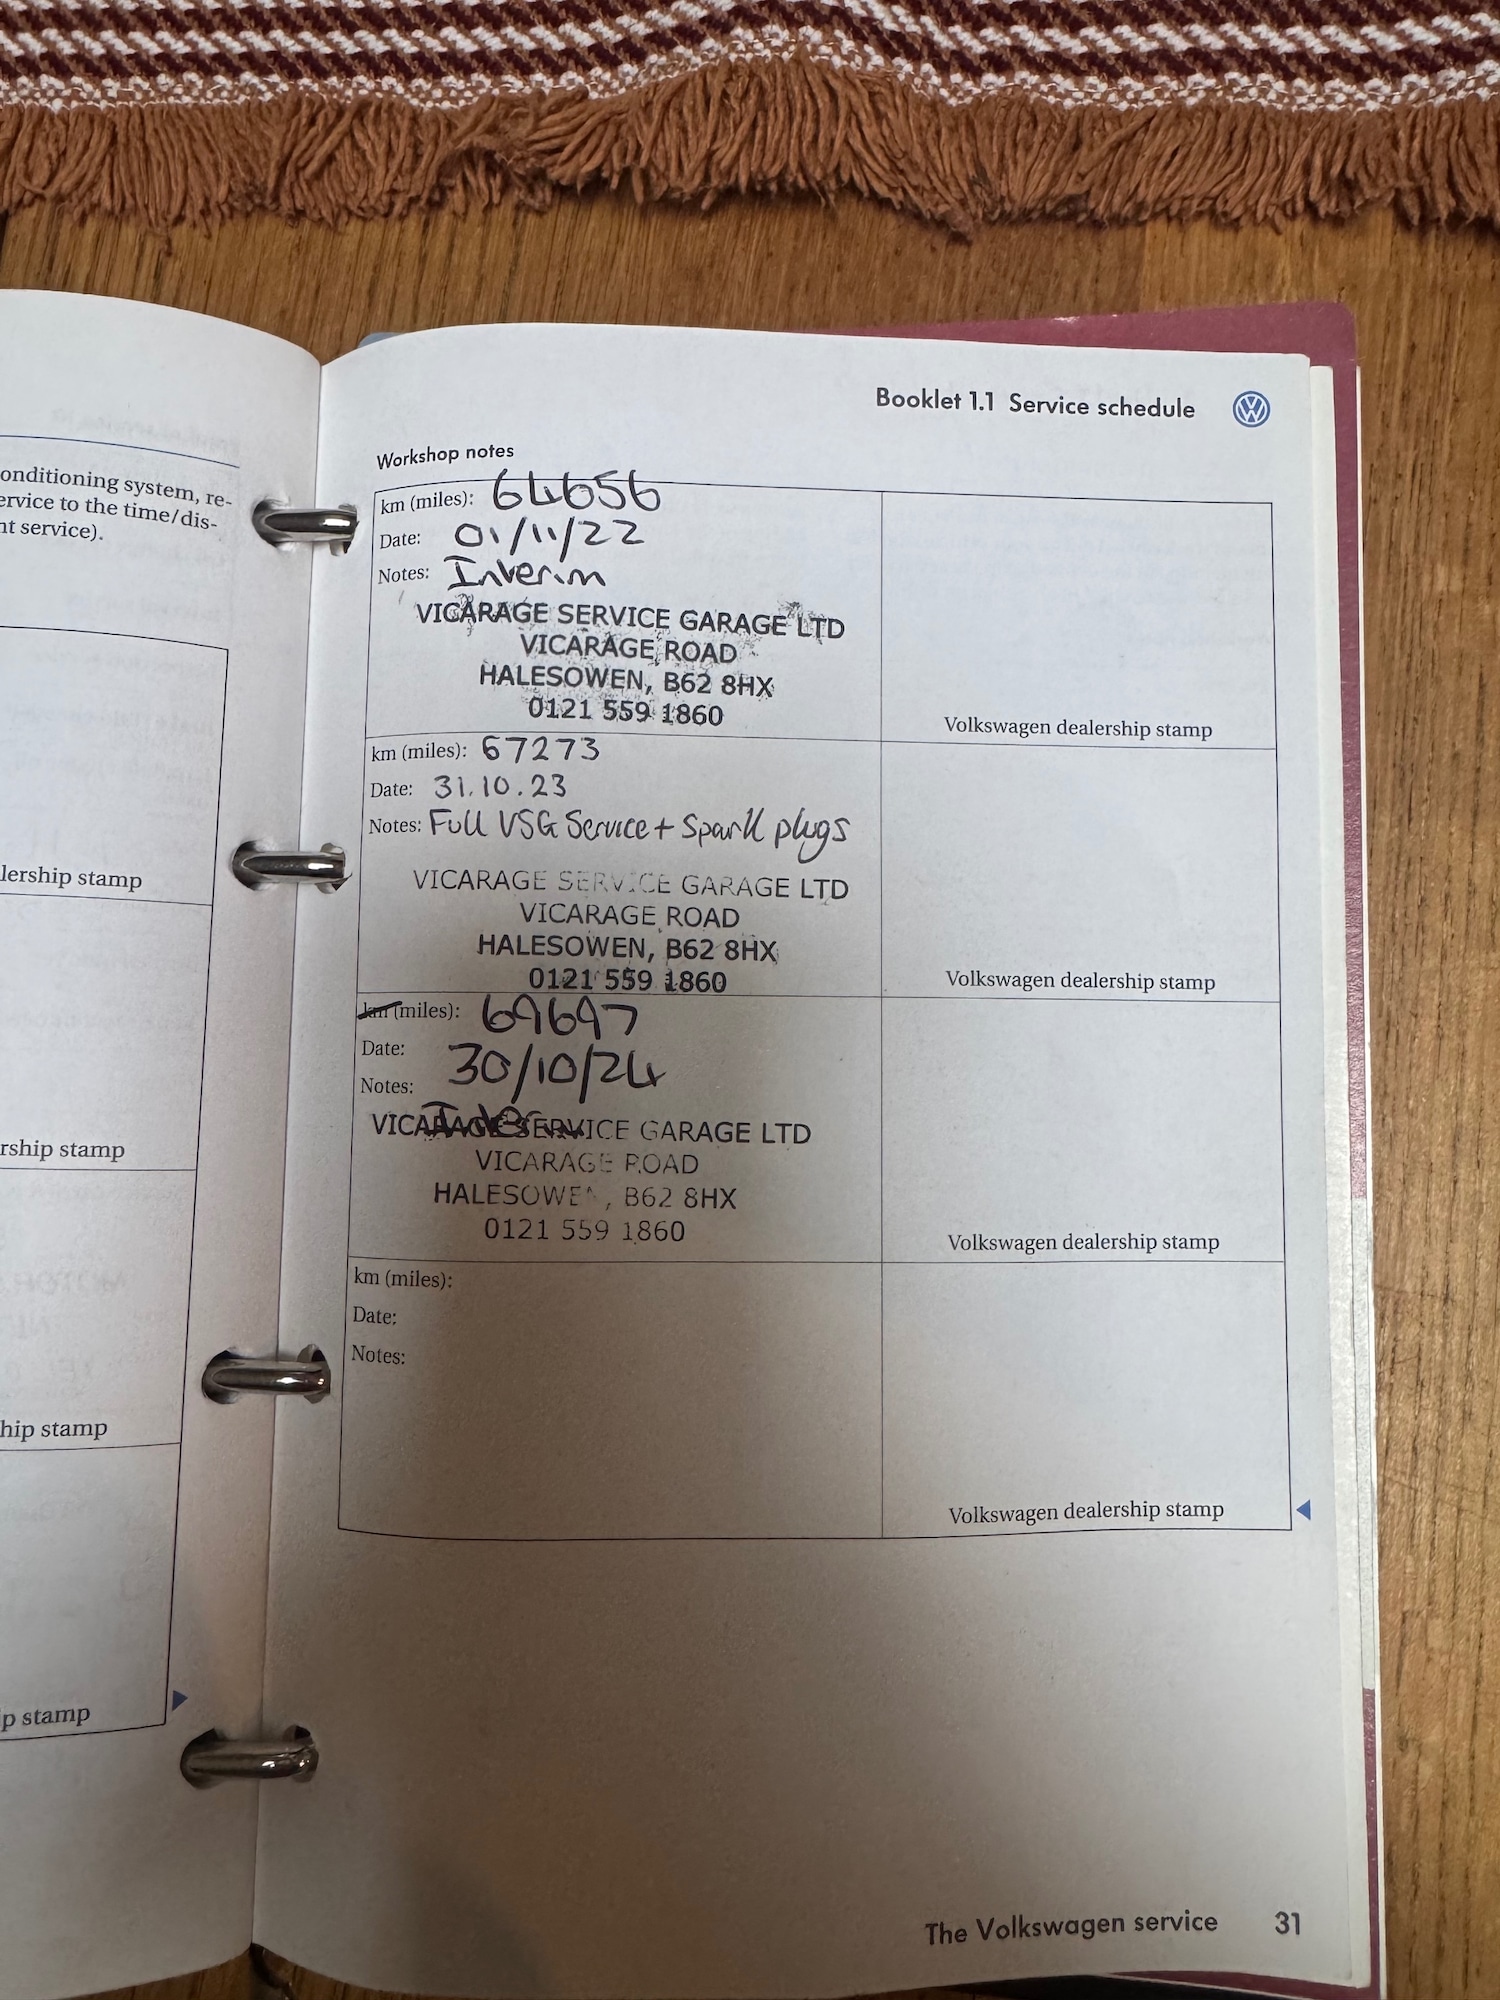 onditioning system, re-
ervice to the time/dis-
nt service).
lership stamp
rship stamp
hip stamp
p stamp
Booklet 1.1 Service schedule
Workshop notes
km (miles): 64656
Date: 01/11/22
Notes: Interim
VICARAGE SERVICE GARAGE LTD
VICARAGE ROAD
HALESOWEN, B62 8HX
0121 559 1860
Volkswagen dealership stamp
km (miles): 67273
Date: 31.10.23
Notes: Full VSG Service + Spark plugs
VICARAGE SERVICE GARAGE LTD
VICARAGE ROAD
HALESOWEN, B62 8HX
0121 559 1860
Volkswagen dealership stamp
km (miles): 69697
Date: 30/10/24
Notes:
VICARAGE SERVICE GARAGE LTD
VICARAGE ROAD
HALESOWEN, B62 8HX
0121 559 1860
Volkswagen dealership stamp
km (miles):
Date:
Notes:
Volkswagen dealership stamp
The Volkswagen service 31